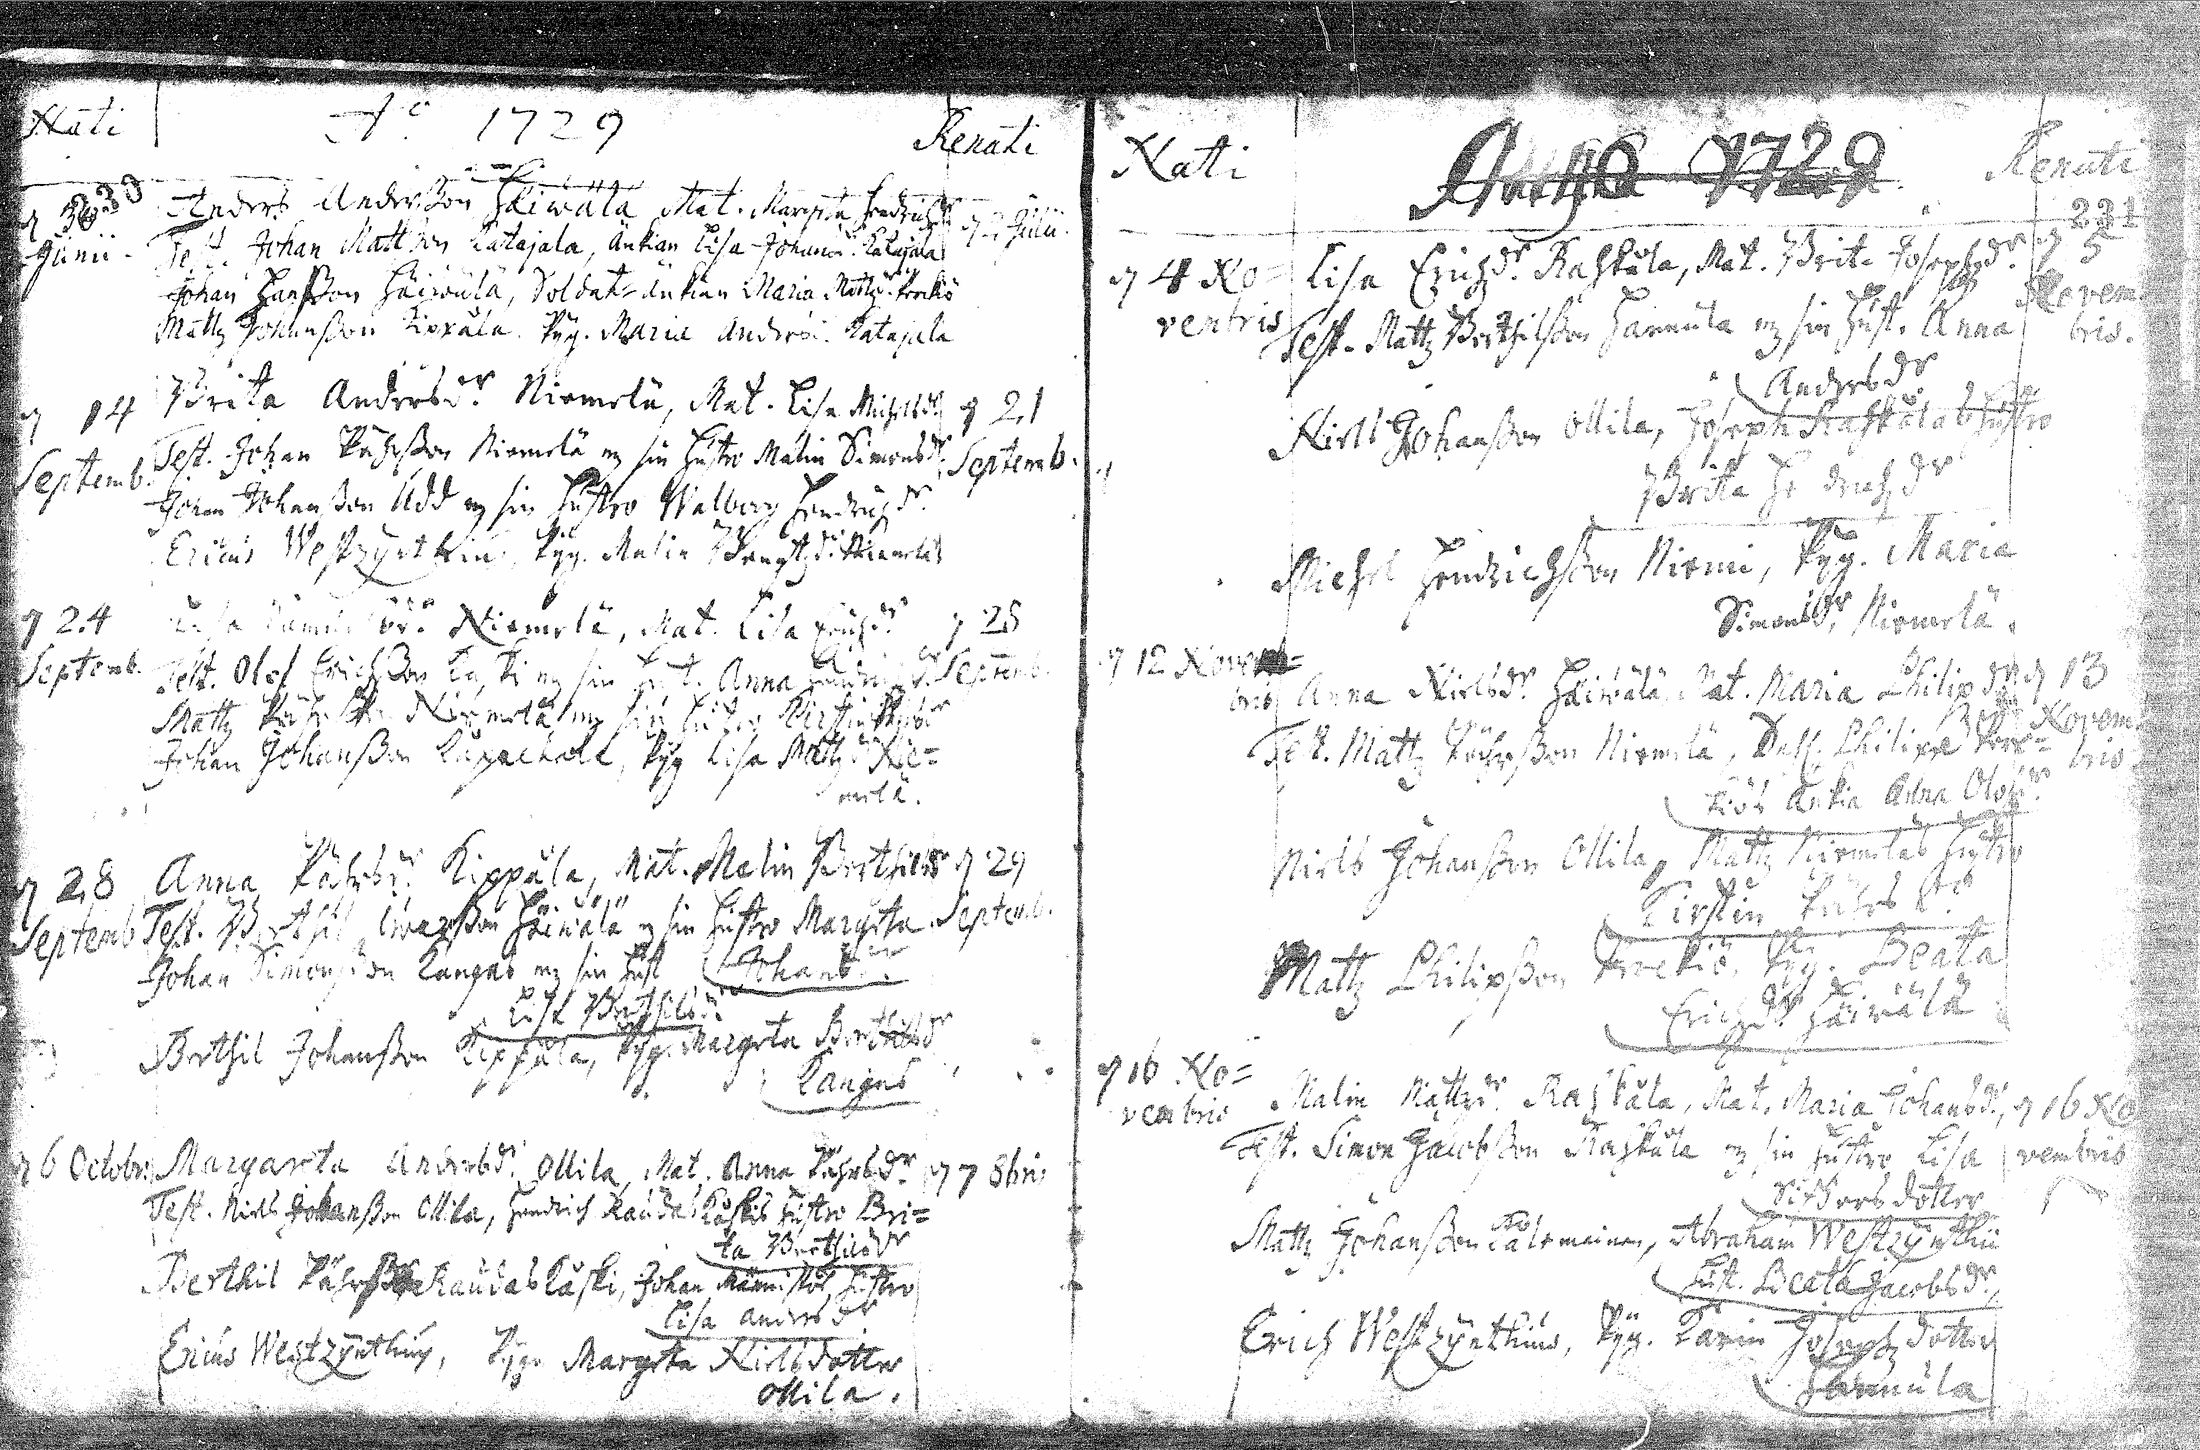 Nati Ao 1729 Renati
230
d 30 Junii. Anders Anderßon Häiwälä Mat. Margeta Hendrichsdr d 2 Julii.
Test. Johan Mattßon Katajala, änkian Lisa Johansdr Katajala
Johan Hanßon Häiwälä, Soldat änkian Maria Mattzdr
Mattz Johanßon Kippula. Pyg. Maria Andersdr Katajala
d 14 Septemb. Brita Andersdr Niemelä, Mat. Lisa Michelsdr d 21 Septemb.
Test. Johan Påhrßon Niemelä m sin Hustro Malin Simonsdr
Johan Johanßon Udd m sin Hustro Walborg Hendrichsdr
Ericus Westzynthius, Pyg. Malin Bengtzdr Niemelä
d 24 Septemb. Lisa Niemelä, Mat. Lisa Erichsdr d 28 Septemb.
Test. Olof Erichßon m sin Hust. Anna
Mattz Niemelä m sin Hustro Kirstin
Johan Johanßon, Pyg Lisa Mattzdr Nie=
melä.
d 28 Septemb Anna Påhrsdr Kippula, Mat. Malin Berthilsdr d 29 Septemb.
Test. Berthil Iwarßon Häiwälä m sin Hustro Margeta
Johansdr
Johan Simonßon Kangas m sin Hust
Lisa Berthilsdr
Berthil Johanßon Kippula, Pyg. Margeta Berthilsdr
Kangas
d 6 Octobr. Margareta Andersdr Ollila, Mat. Anna Påhrsdr d 7 8bris
Test. Niels Johanßon Ollila, Hendrich Raudaskåskis Hustro Bri=
ta Berthilsdr
Berthil Påhrßon Raudaskåski, Johan Männistös Hustro
Lisa Andersdr
Ericus Westzynthius, Pyg. Margeta Nielsdotter
Ollila.
Nati Anno 1729 Renati
231
d 4 No=
ventris Lisa Erichsdr Rahkula, Mat. Brita Josephsdr d 5 Novem
bris.
Test. Mattz Berthilßon Hannula m sin Hust. Anna
Andersdr
Niels Johanßon Ollila, Joseph Rahkulas Hustro
Brita Hendrichsdr
Michel Hendrichßon Niemi, Pyg. Maria
Simonsdr Niemelä.
d 12 Novem=
bris Anna Nielsdr Häiwälä, Mat. Maria Philipsdr d 13 Novem
bris
Test. Mattz Påhrßon Niemelä, Sal. Philip
Änkia Anna Olofsdr
Niels Johanßon Ollila, Mattz Niemeläs Hustro
Kirstin Påhrsdr
Mattz Philipßon, Pyg. Beata
Erichsdr Häiwälä
d 16 No=
vembris Malin Mattzdr Rahkula, Mat. Maria Johansdr, d 16 No
vembris
Test. Simon Jacobßon Rahkula m sin Hustro Lisa
Sigfersdotter
Mattz Johanßon, Abraham Westzynthii
Hust. Beata Jacobsdr,
Erich Westzynthius, Pyg. Karin Josephzdotter
Hannula